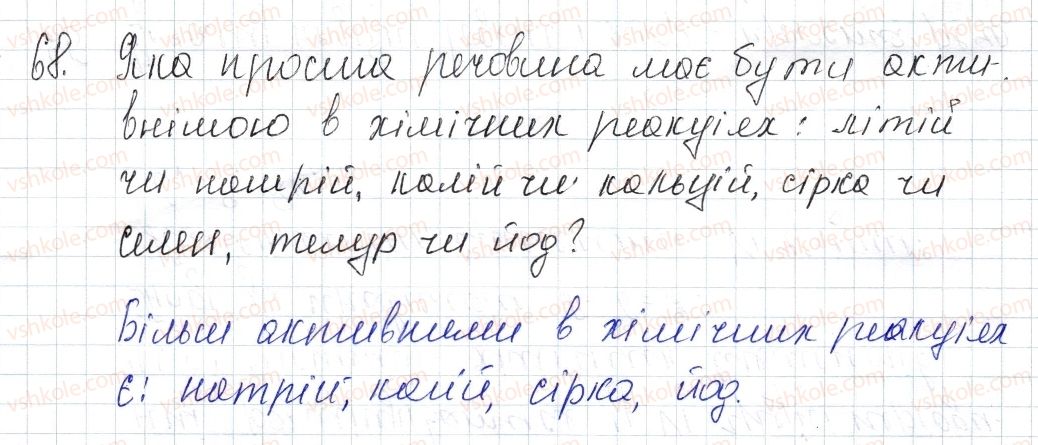 68. Яка проста речовина має бути акти-
внімою в хімічних реакціях: літій
чи натрій, калій чи кальцій, сірка чи
селен, телур чи йод?
Більш активними в хімічних реакціях
є: натрій, калій, сірка, йод.